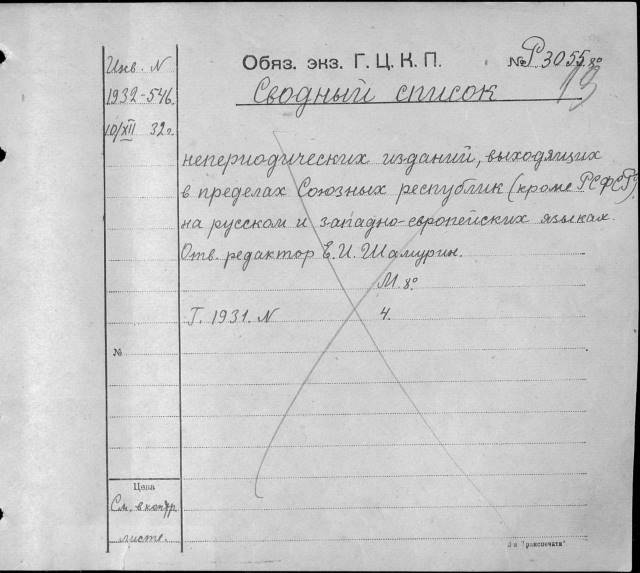 Обяз. экз. Г. Ц. К. П. № Р3055 8°
Инв. N
Сводный список 13
1932-546
10/XII 32 г.
непериодических изданий, выходящих
в пределах Союзных республик (кроме РСФСР)
на русском и западно-европейских языках.
Отв. редактор Е. И. Шамурин.
М. 8°
Г. 1931. N 4.
№
Цена
См. в контр.
листе.